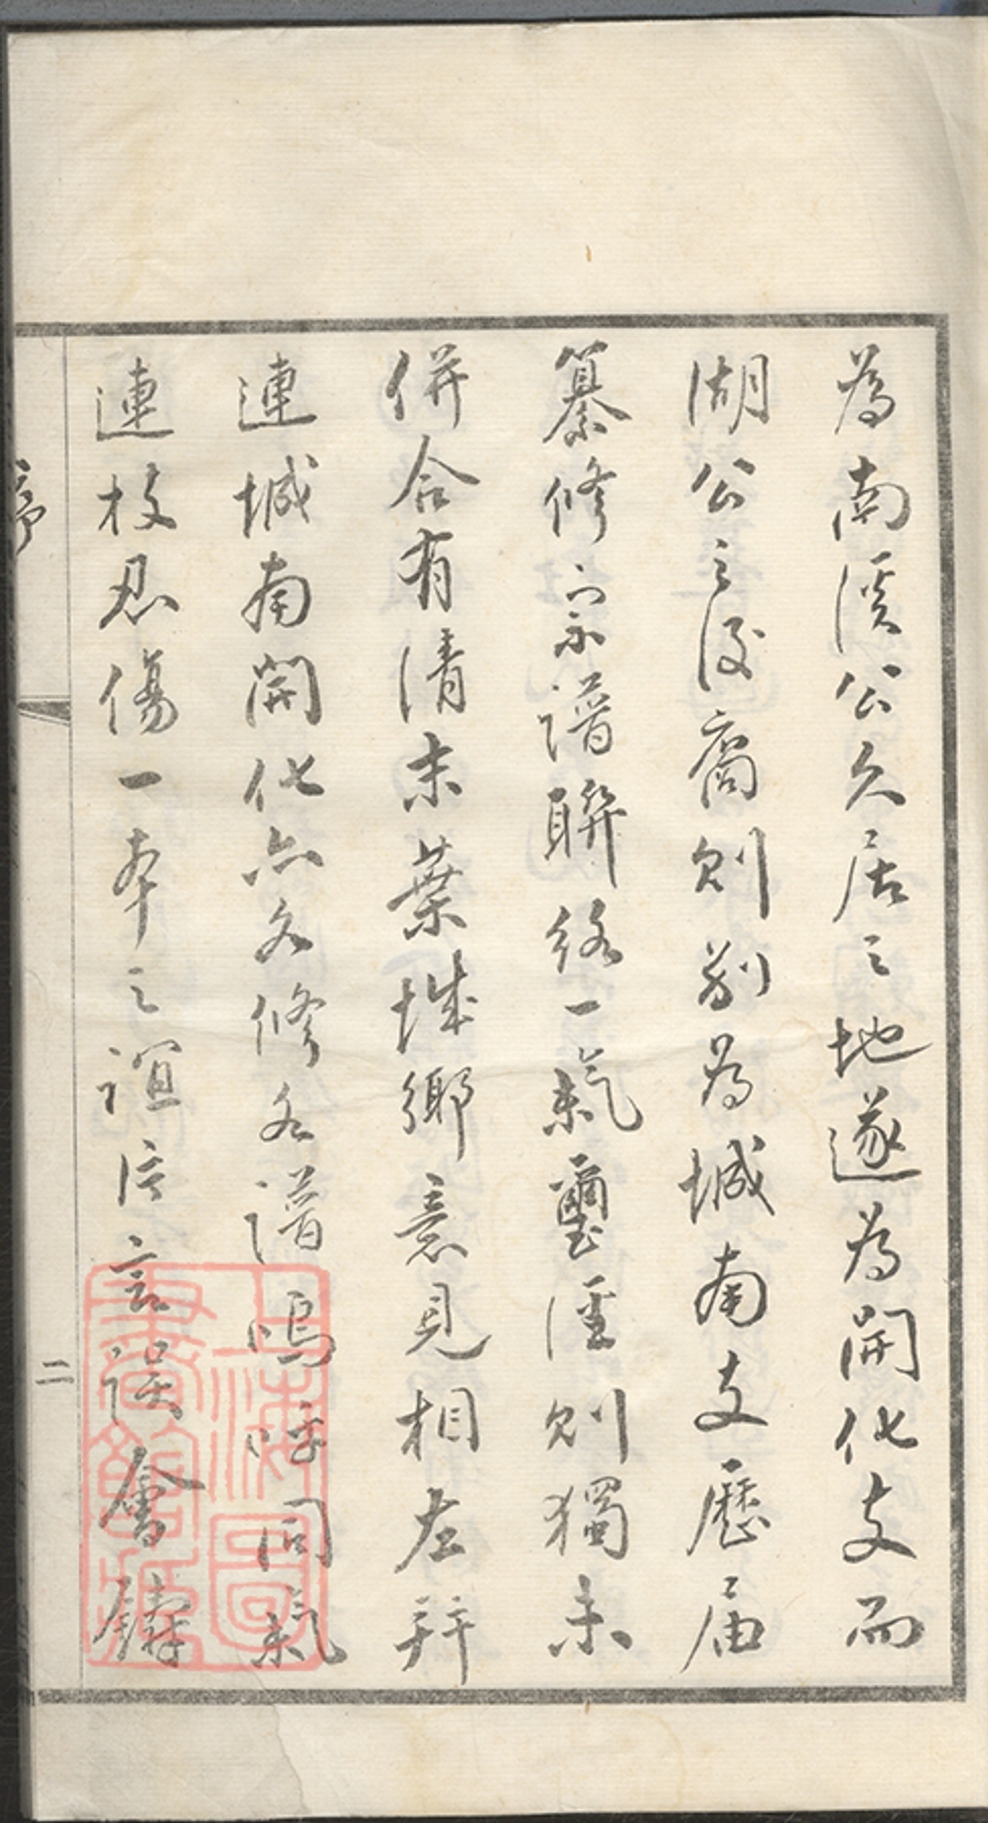 為南溪公久居之地遂為開化支而
湖公之後裔則別為城南支歷届
纂修宗譜聯絡一氣璽涇則獨未
併合有清末葉城鄉意見相左辞
連城南開化亦各修各譜嗚呼同氣
連枝忍傷一本之誼片言誤會鑄
序
二
上海圖
書館藏